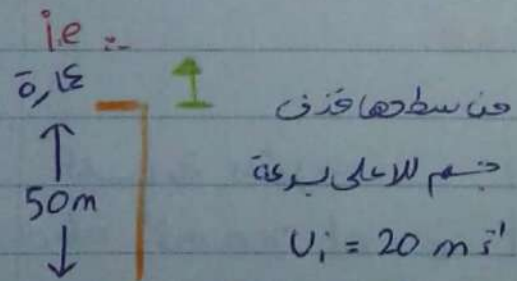 i.e :-
عمارة
من سطحها قذف
جسم للاعلى بسرعة
50m
U_i = 20 m s⁻¹